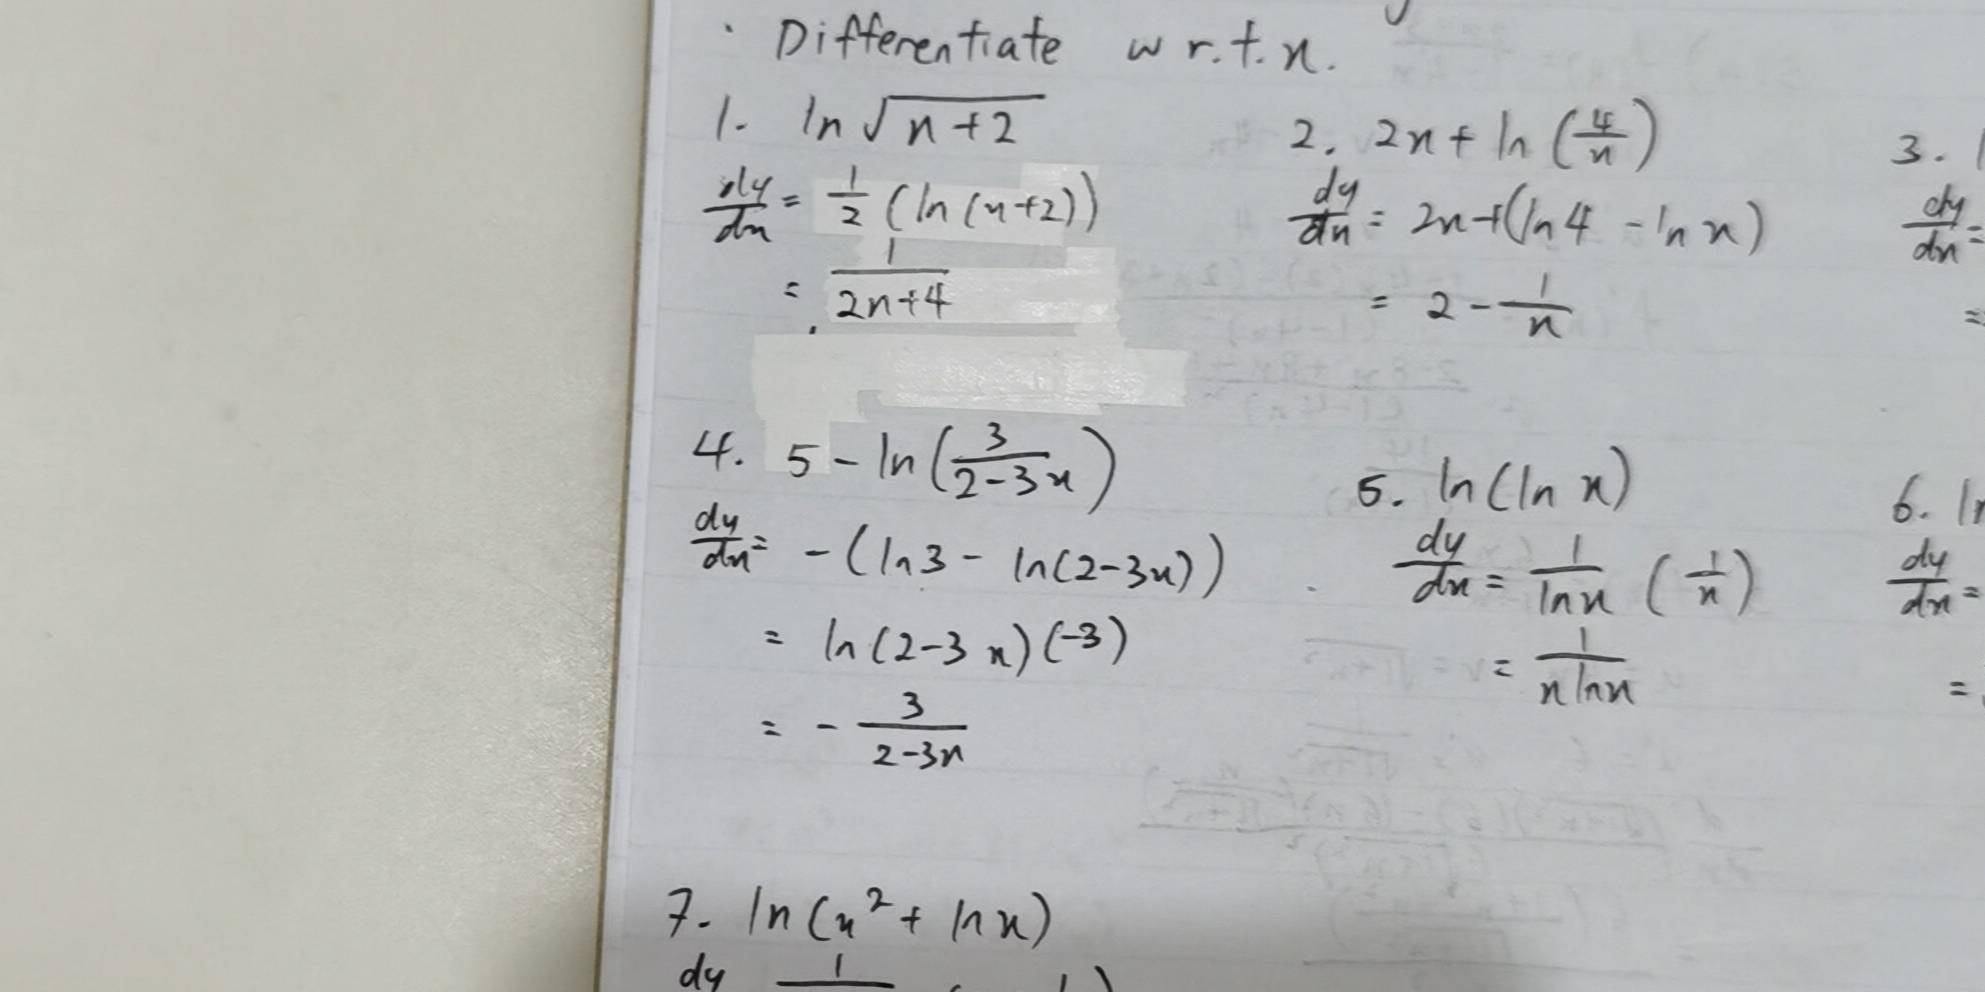 · Differentiate w r.t. x.
1. ln √(x+2)
dy/dx = 1/2 (ln (x+2))
= 1/(2x+4)
2. 2x + ln (4/x)
dy/dx = 2x + (ln 4 - ln x)
= 2 - 1/x
3.
dy/dx =
=
4. 5 - ln (3/(2-3x))
dy/dx = - (ln 3 - ln(2-3x))
= ln (2-3x) (-3)
= - 3/(2-3x)
5. ln (ln x)
dy/dx = 1/(ln x) (1/x)
= 1/(x ln x)
6. ln
dy/dx =
=
7. ln (x² + ln x)
dy